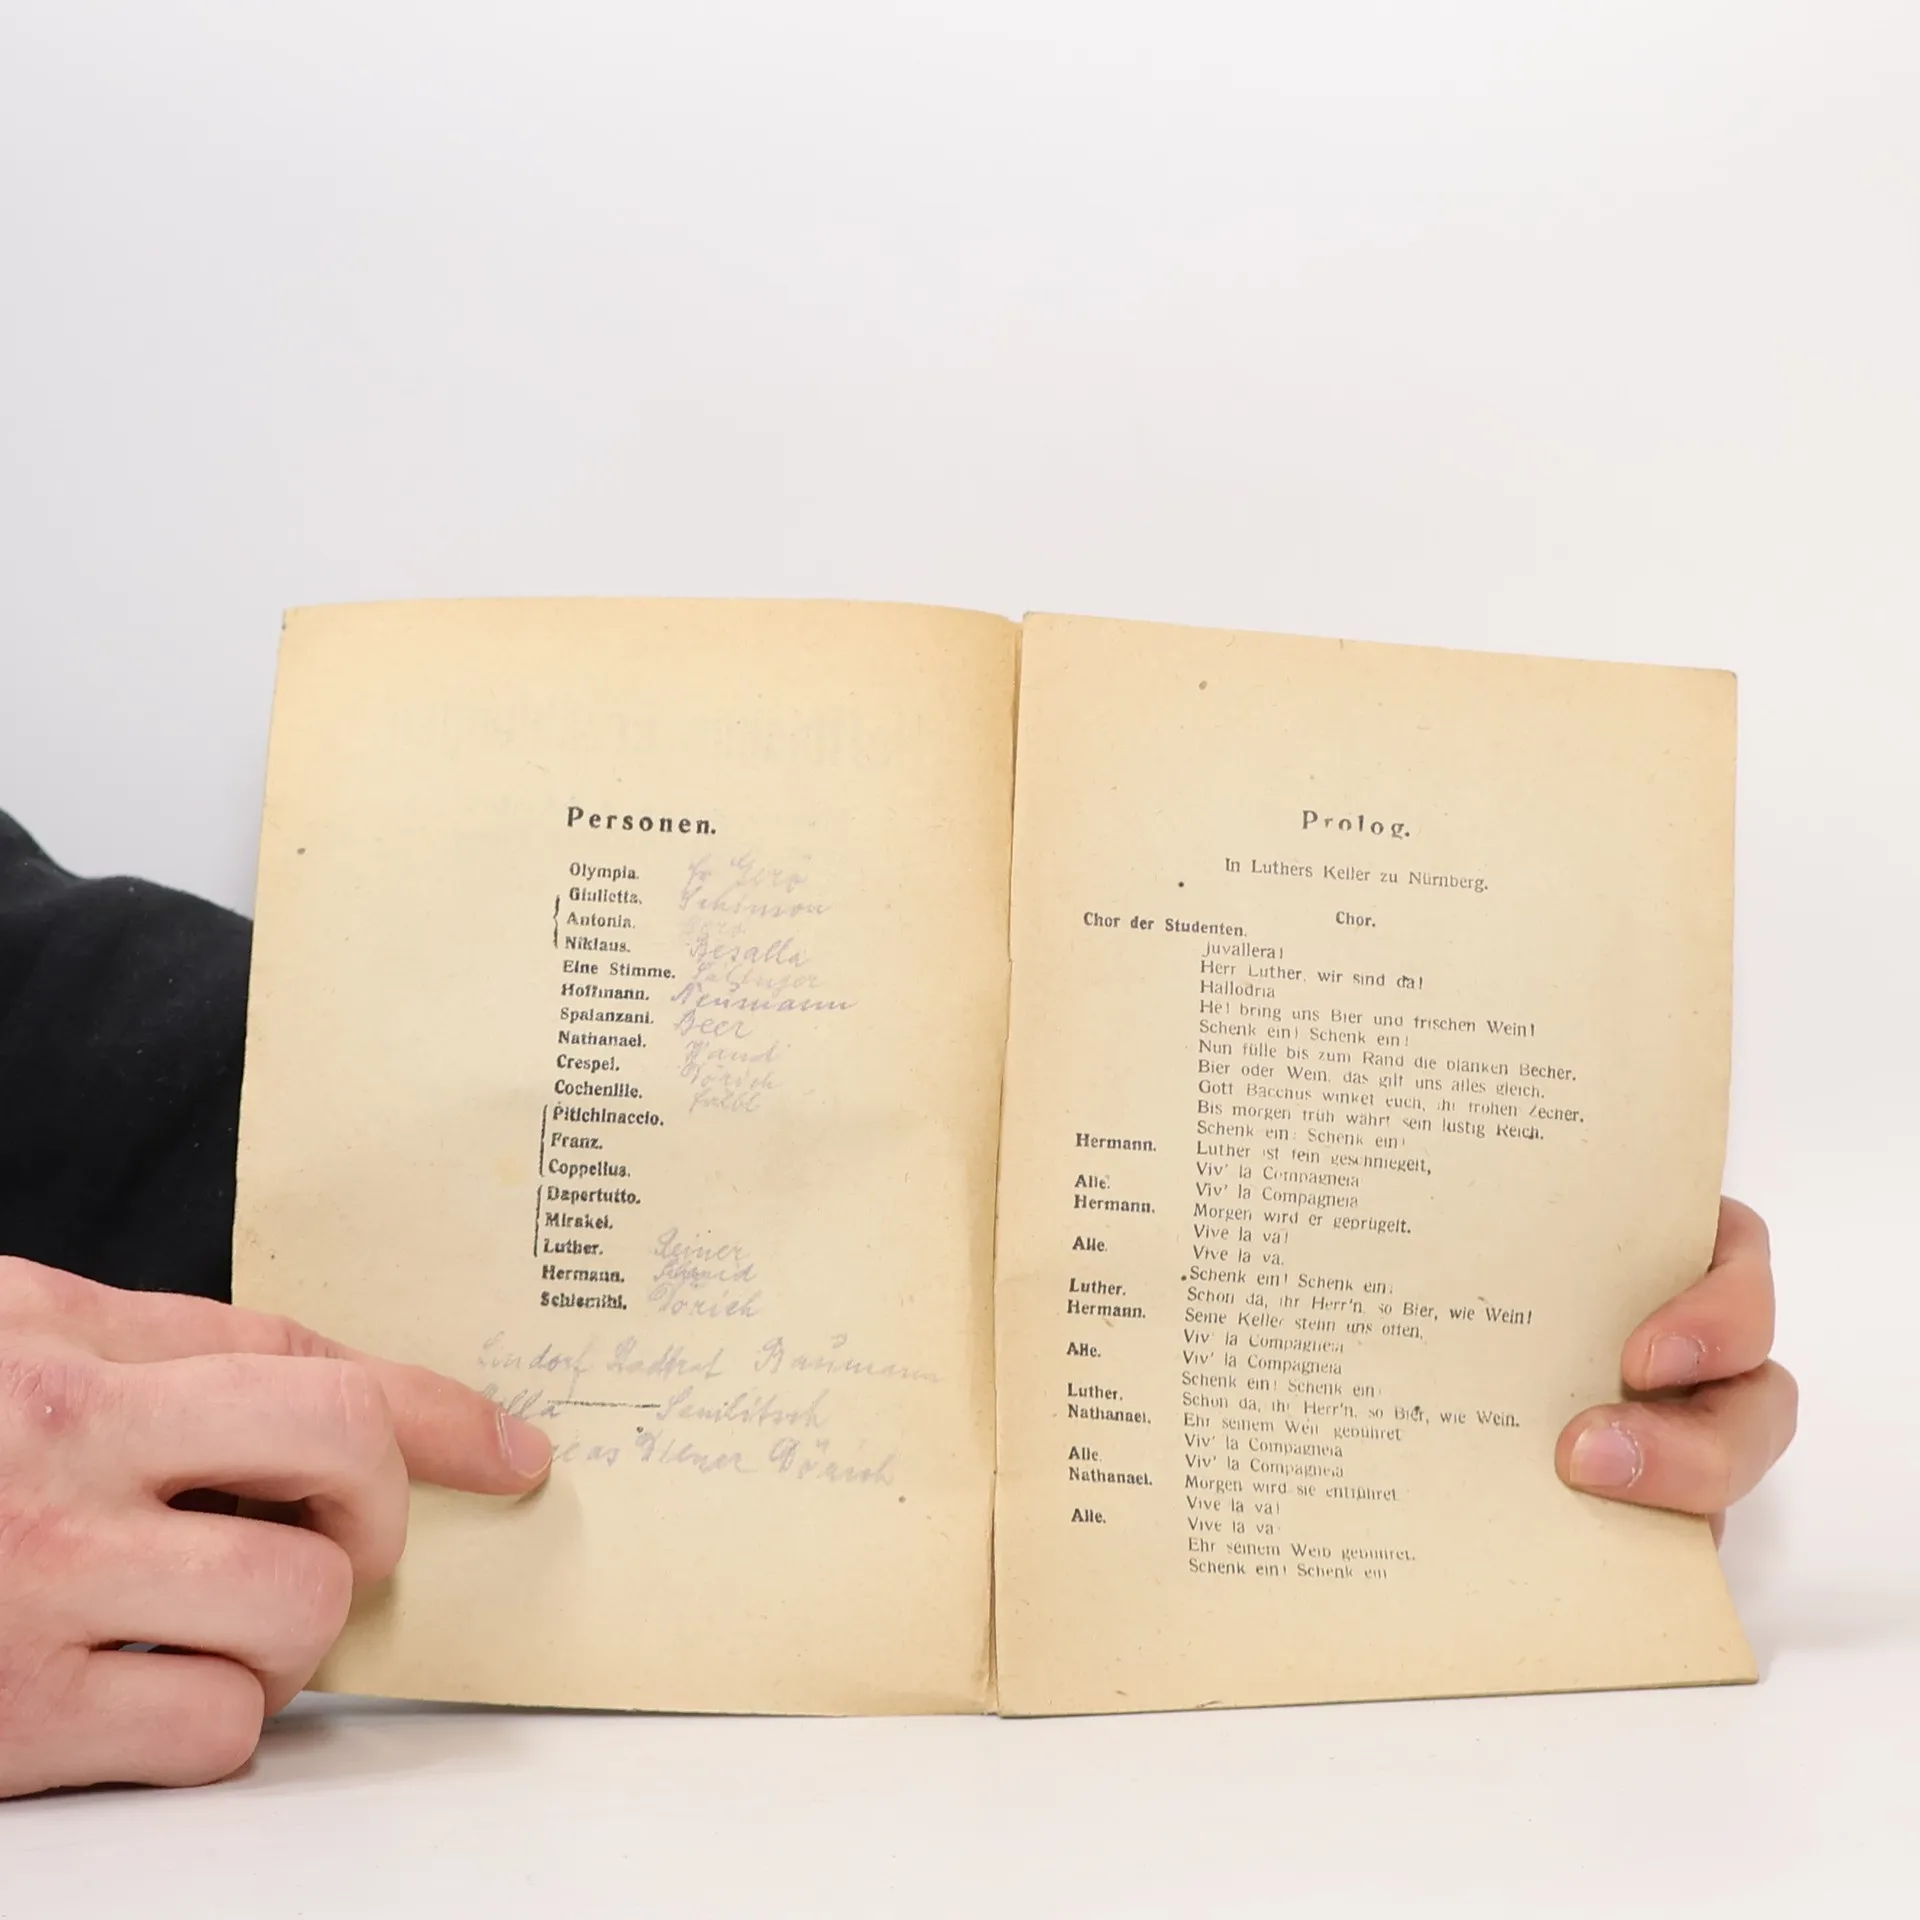 Personen.
Olympia. Fr Gerö
Giulietta. Schimon
Antonia.
Niklaus. Besalla
Eine Stimme.
Hoffmann. Neumann
Spalanzani. Beer
Nathanael. Wand
Crespel. Dörich
Cochenille.
Pitichinaccio.
Franz.
Coppelius.
Dapertutto.
Mirakel.
Luther. Reiner
Hermann. Schmid
Schlemihl. Dörich
Lindorf Baumann
Dörich
Prolog.
In Luthers Keller zu Nürnberg.
Chor.
Chor der Studenten.
Juvallera!
Herr Luther, wir sind da!
Hallodria
He! bring uns Bier und frischen Wein!
Schenk ein! Schenk ein!
Nun fülle bis zum Rand die blanken Becher.
Bier oder Wein, das gilt uns alles gleich.
Gott Bacchus winket euch, ihr frohen Zecher.
Bis morgen früh währt sein lustig Reich.
Schenk ein! Schenk ein!
Hermann. Luther ist fein geschniegelt,
Alle. Viv' la Compagneia
Viv' la Compagneia
Hermann. Morgen wird er geprügelt.
Vive la va!
Alle. Vive la va.
Schenk ein! Schenk ein!
Luther. Schon da, ihr Herr'n, so Bier, wie Wein!
Hermann. Seine Keller stehn uns offen,
Viv' la Compagneia
Alle. Viv' la Compagneia
Schenk ein! Schenk ein
Luther. Schon da, ihr Herr'n, so Bier, wie Wein.
Nathanael. Ehr seinem Weib gebühret
Viv' la Compagneia
Alle. Viv' la Compagneia
Nathanael. Morgen wird sie entführet
Vive la va!
Alle. Vive la va
Ehr seinem Weib gebühret.
Schenk ein! Schenk ein